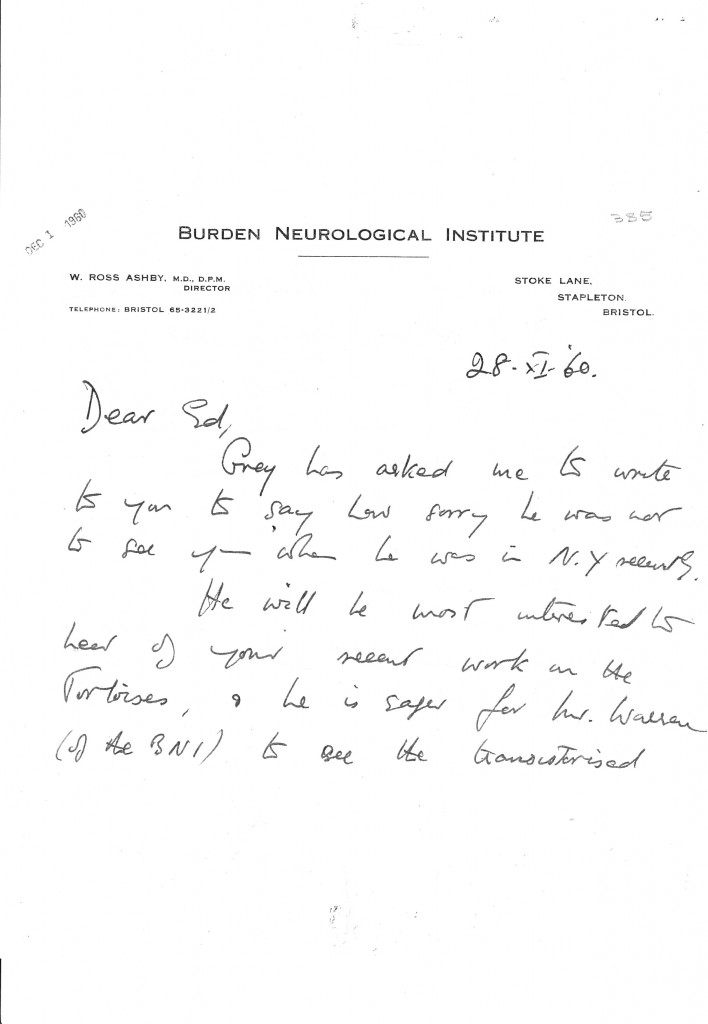 DEC 1 1960
385
BURDEN NEUROLOGICAL INSTITUTE
W. ROSS ASHBY, M.D., D.P.M.
DIRECTOR
TELEPHONE: BRISTOL 65-3221/2
STOKE LANE,
STAPLETON,
BRISTOL.
28-XI-60.
Dear Ed,
Grey has asked me to write
to you to say how sorry he was not
to see you when he was in N.Y recently.
He will be most interested to
hear of your recent work on the
Tortoises, & he is eager for Mr. Warren
(of the BNI) to see the transistorised